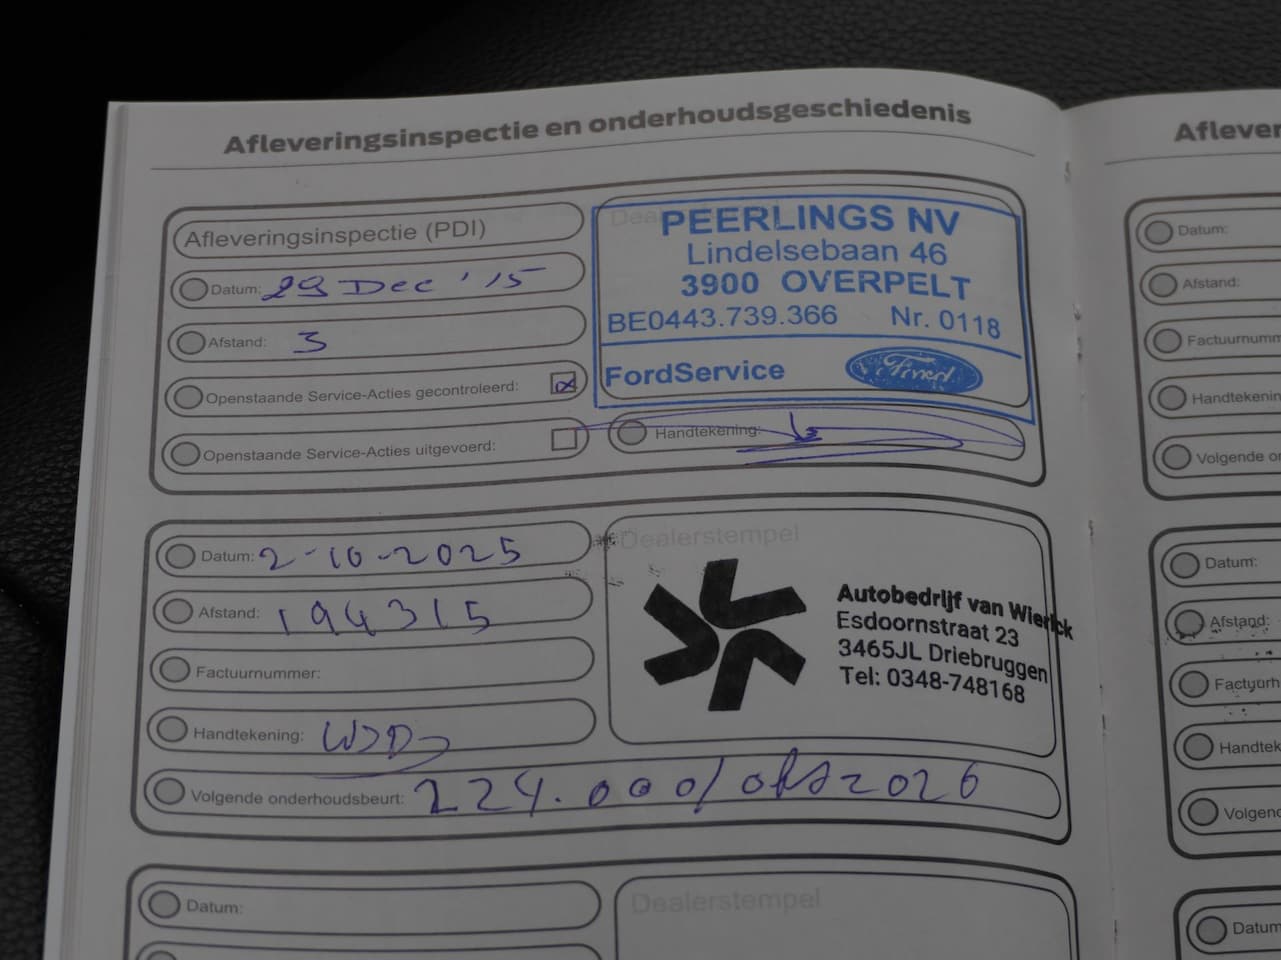 Afleveringsinspectie en onderhoudsgeschiedenis
Afleveringsinspectie (PDI)
Datum: 29 Dec '15
Afstand: 3
Openstaande Service-Acties gecontroleerd:
Openstaande Service-Acties uitgevoerd:
PEERLINGS NV
Lindelsebaan 46
3900 OVERPELT
BE0443.739.366 Nr. 0118
FordService
Ford
Handtekening:
Datum: 2-10-2025
Afstand: 194315
Factuurnummer:
Handtekening:
Volgende onderhoudsbeurt: 224.000/okt 2026
Dealerstempel
Autobedrijf van Wierick
Esdoornstraat 23
3465JL Driebruggen
Tel: 0348-748168
Datum:
Dealerstempel
Aflever
Datum:
Afstand:
Factuurnumm
Handtekenin
Volgende o
Datum:
Afstand:
Factuurn
Handtek
Volgend
Datum